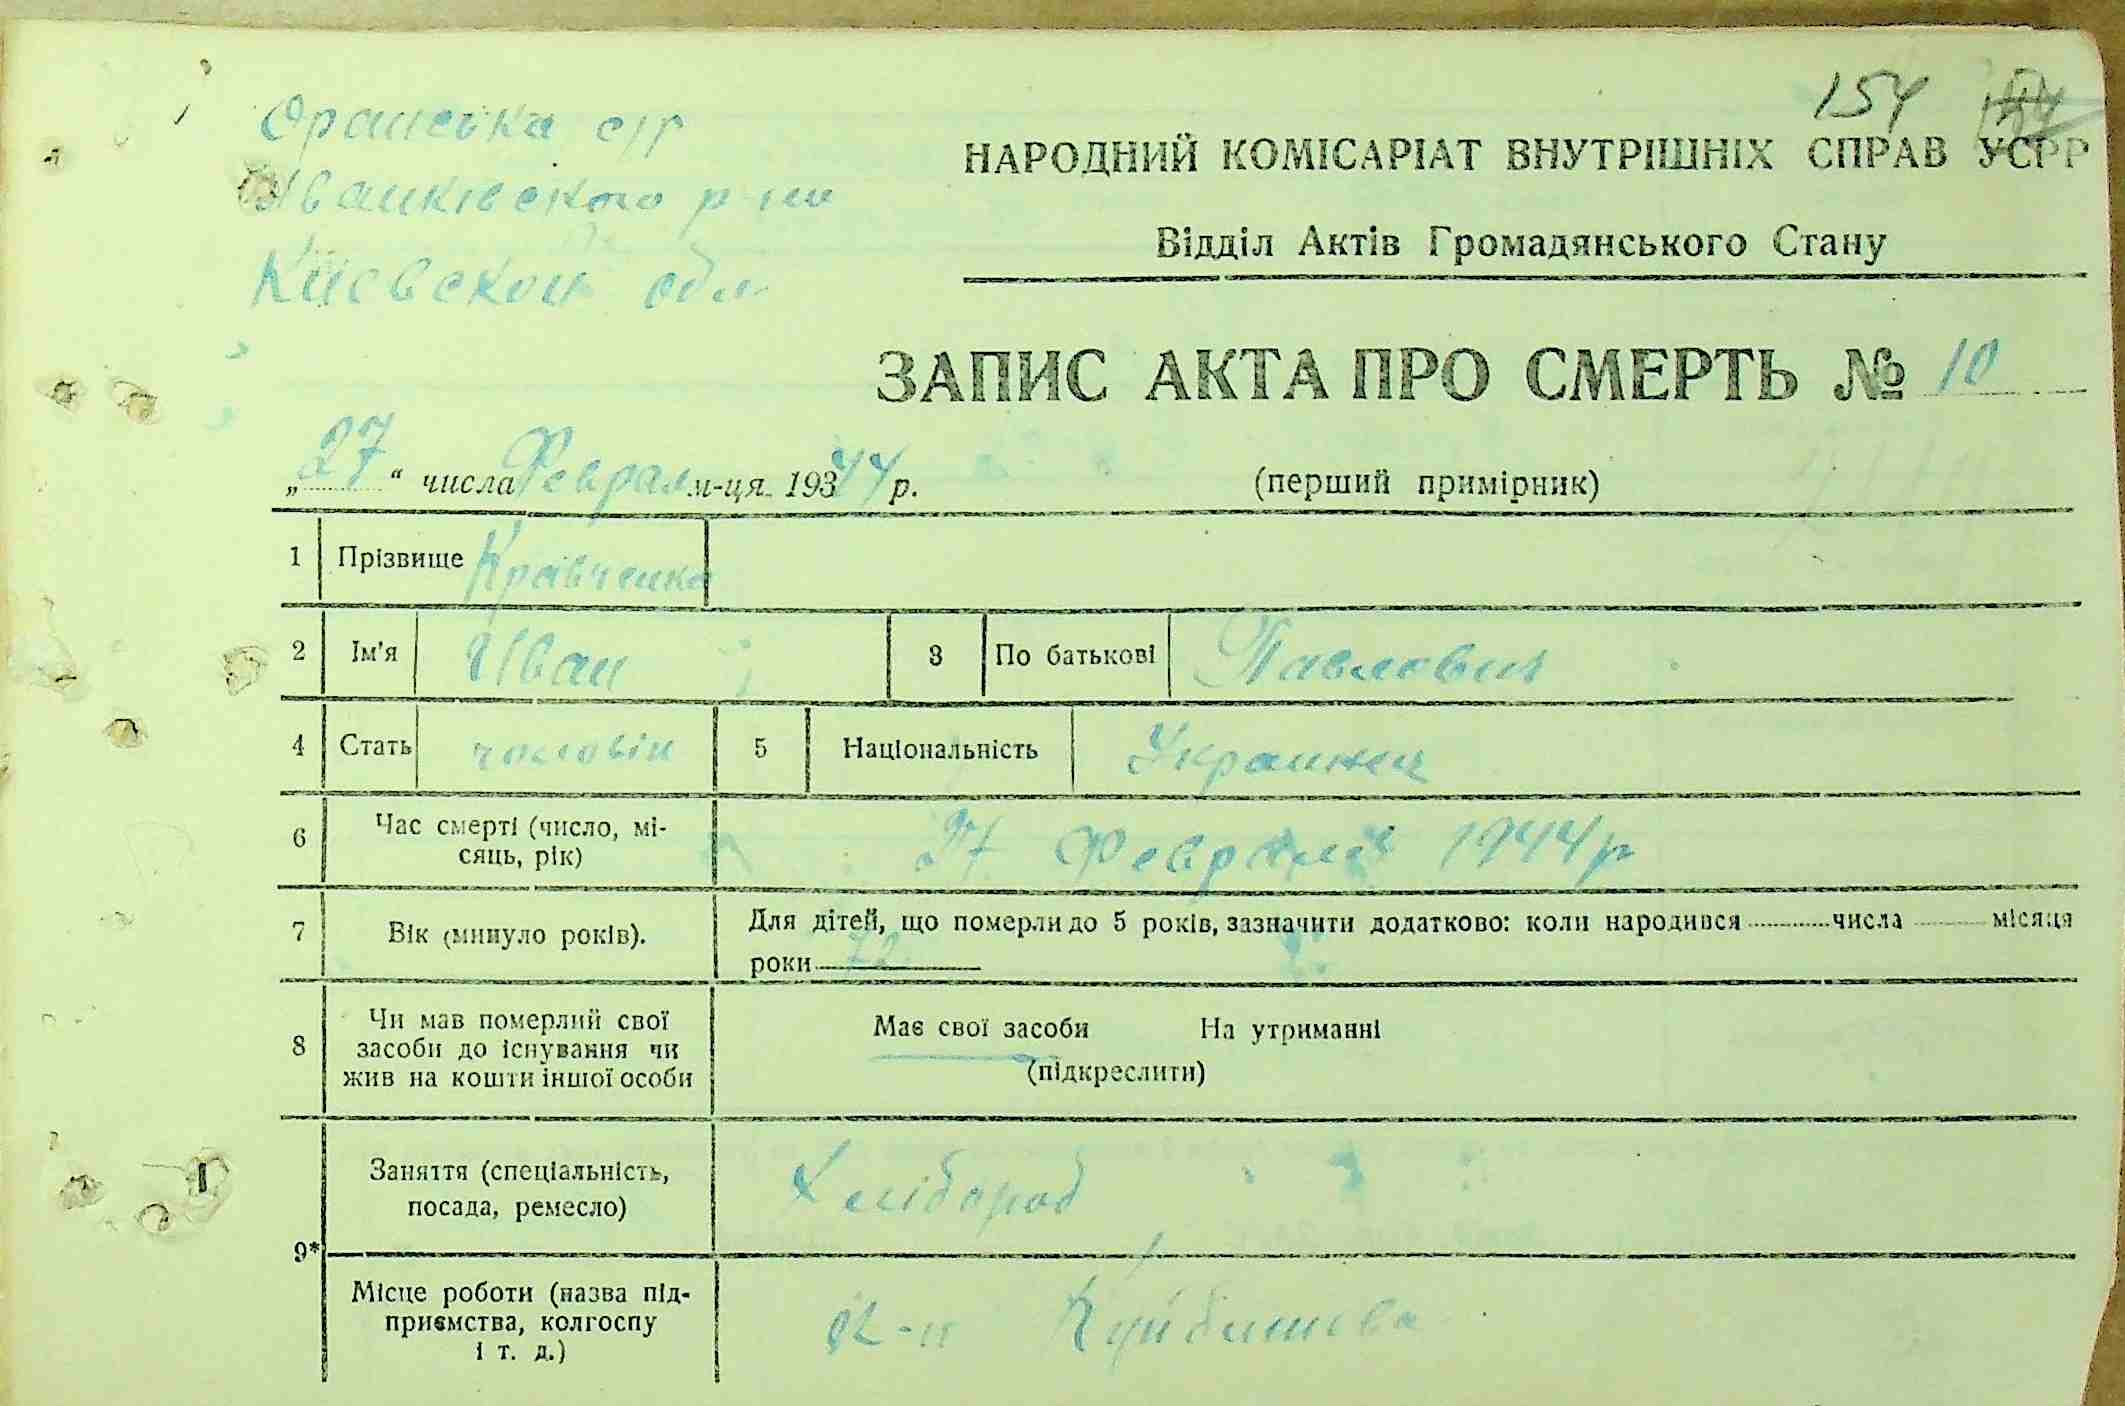 154
Оранська с/р
Іванківського р-ну
Киевской обл
НАРОДНИЙ КОМІСАРІАТ ВНУТРІШНІХ СПРАВ УСРР
Відділ Актів Громадянського Стану
ЗАПИС АКТА ПРО СМЕРТЬ № 10
„27“ числа Феврал м-ця 193 44 р.
(перший примірник)
1 Прізвище Кравченко
2 Ім'я Иван 3 По батькові Павлович
4 Стать чоловік 5 Національність Украинец
6 Час смерті (число, мі-
сяць, рік)
27 Февраля 1944 р
7 Вік (минуло років).
Для дітей, що померли до 5 років, зазначити додатково: коли народився числа місяця
роки 72
8 Чи мав померлий свої
засоби до існування чи
жив на кошти іншої особи
Має свої засоби На утриманні
(підкреслити)
9*
Заняття (спеціальність,
посада, ремесло)
Хлібороб
Місце роботи (назва під-
приємства, колгоспу
і т. д.)
к-п Куйбишева